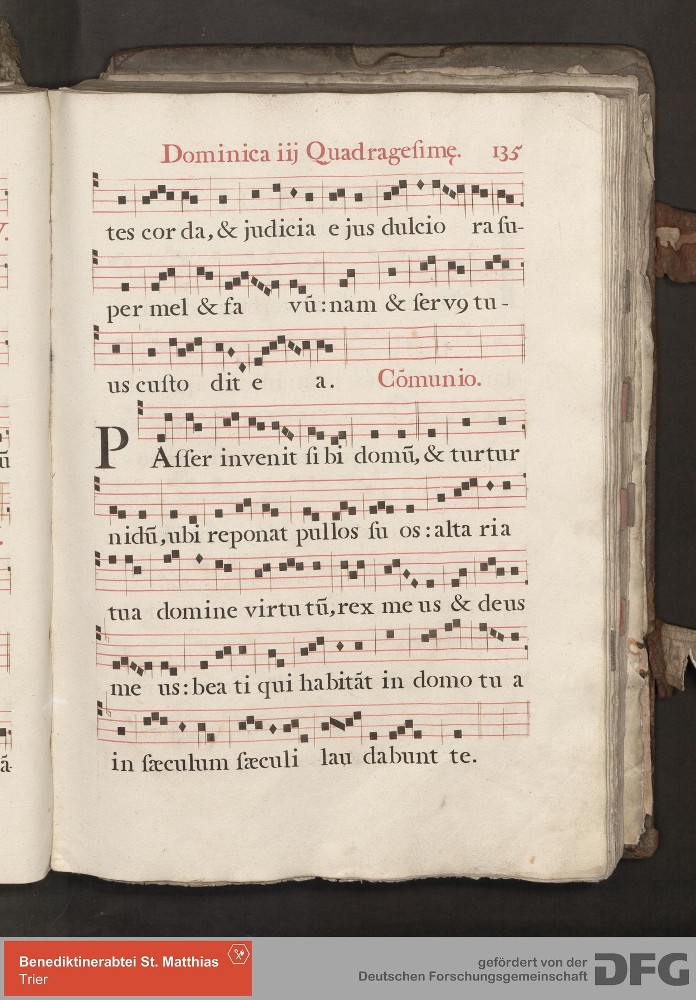 Dominica iij Quadrageſimę. 135
tes cor da, & judicia e jus dulcio ra ſu-
per mel & fa vū: nam & ſervꝯ tu -
us cuſto dit e a. Cōmunio.
P Aſſer invenit ſi bi domū, & turtur
nidū, ubi reponat pullos ſu os: alta ria
tua domine virtu tū, rex me us & deus
me us: bea ti qui habitāt in domo tu a
in ſæculum ſæculi lau dabunt te.
V.
ū
ā-
Benediktinerabtei St. Matthias
Trier
gefördert von der
Deutschen Forschungsgemeinschaft
DFG